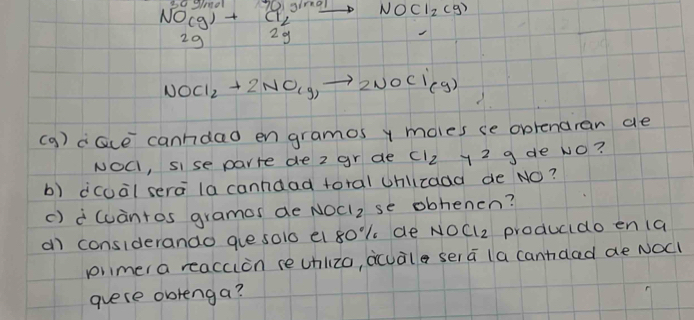 NO(g) + Cl2 → NOCl2 (g)
2g 2g
NOCl2 + 2NO(g) → 2NOCl(g)
(a) ¿Qué cantidad en gramos y moles se obtendran de
NOCl, si se parte de 2 gr de Cl2 y 2 g de NO?
b) ¿cuál será la cantidad total utilizada de NO?
c) ¿cuàntos gramos de NOCl2 se obtienen?
d) considerando que solo el 80% de NOCl2 producido en la
primera reacciòn se utilizo, ¿cuál será la cantidad de NOCl
que se obtenga?